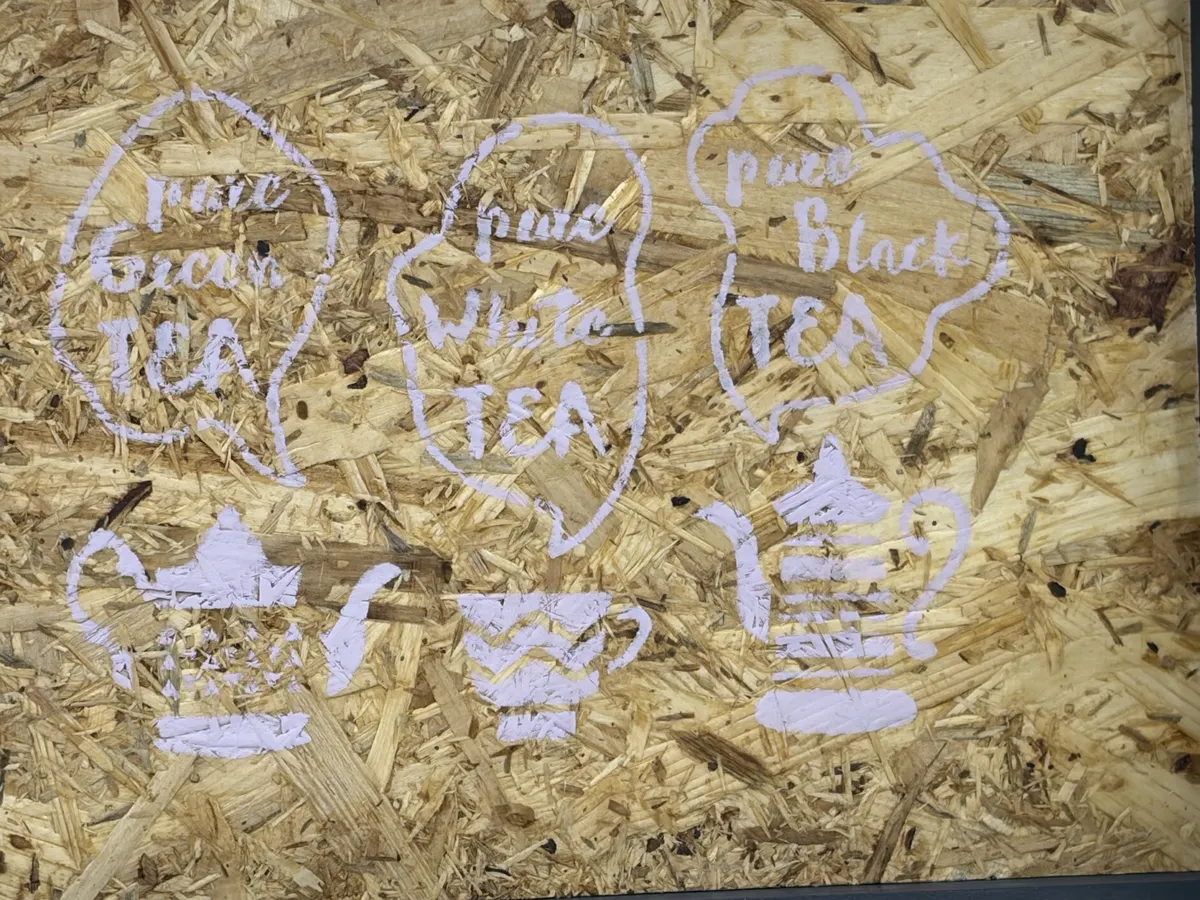 pure
Green
TEA
pure
White
TEA
pure
Black
TEA